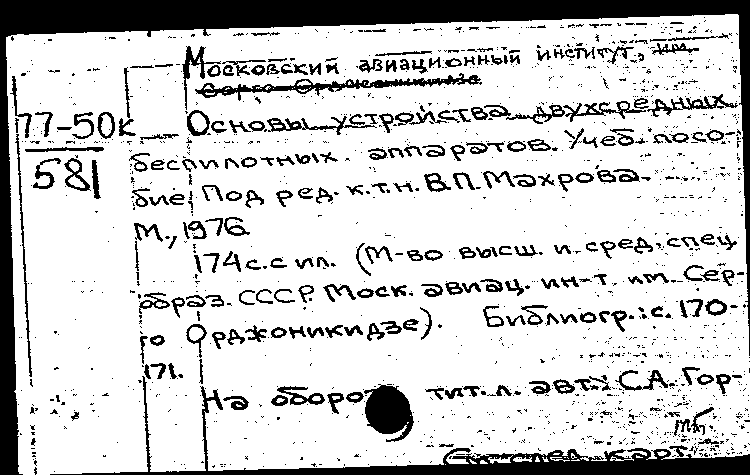 Московский авиационный институт, им.
Серго Орджоникидзе
77-50к
581
Основы устройства двухсредных
беспилотных аппаратов. Учеб. посо-
бие. Под ред. к.т.н. В.П. Махрова.
М., 1976.
174 с. с ил. (М-во высш. и сред. спец.
образ. СССР. Моск. авиац. ин-т им. Сер-
го Орджоникидзе). Библиогр.: с. 170-
171.
На оборо тит. л. авт.: С.А. Гор-
(См. след. карт.